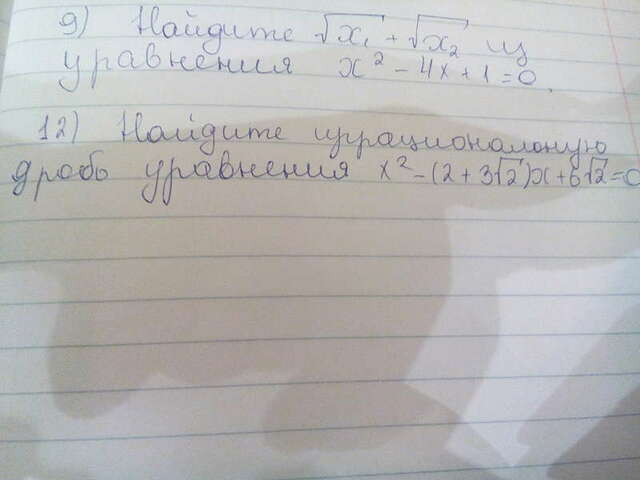 9) Найдите √x₁ + √x₂ из
уравнения x² - 4x + 1 = 0.
12) Найдите иррациональную
дробь уравнения x² - (2 + 3√2)x + 6√2 = 0